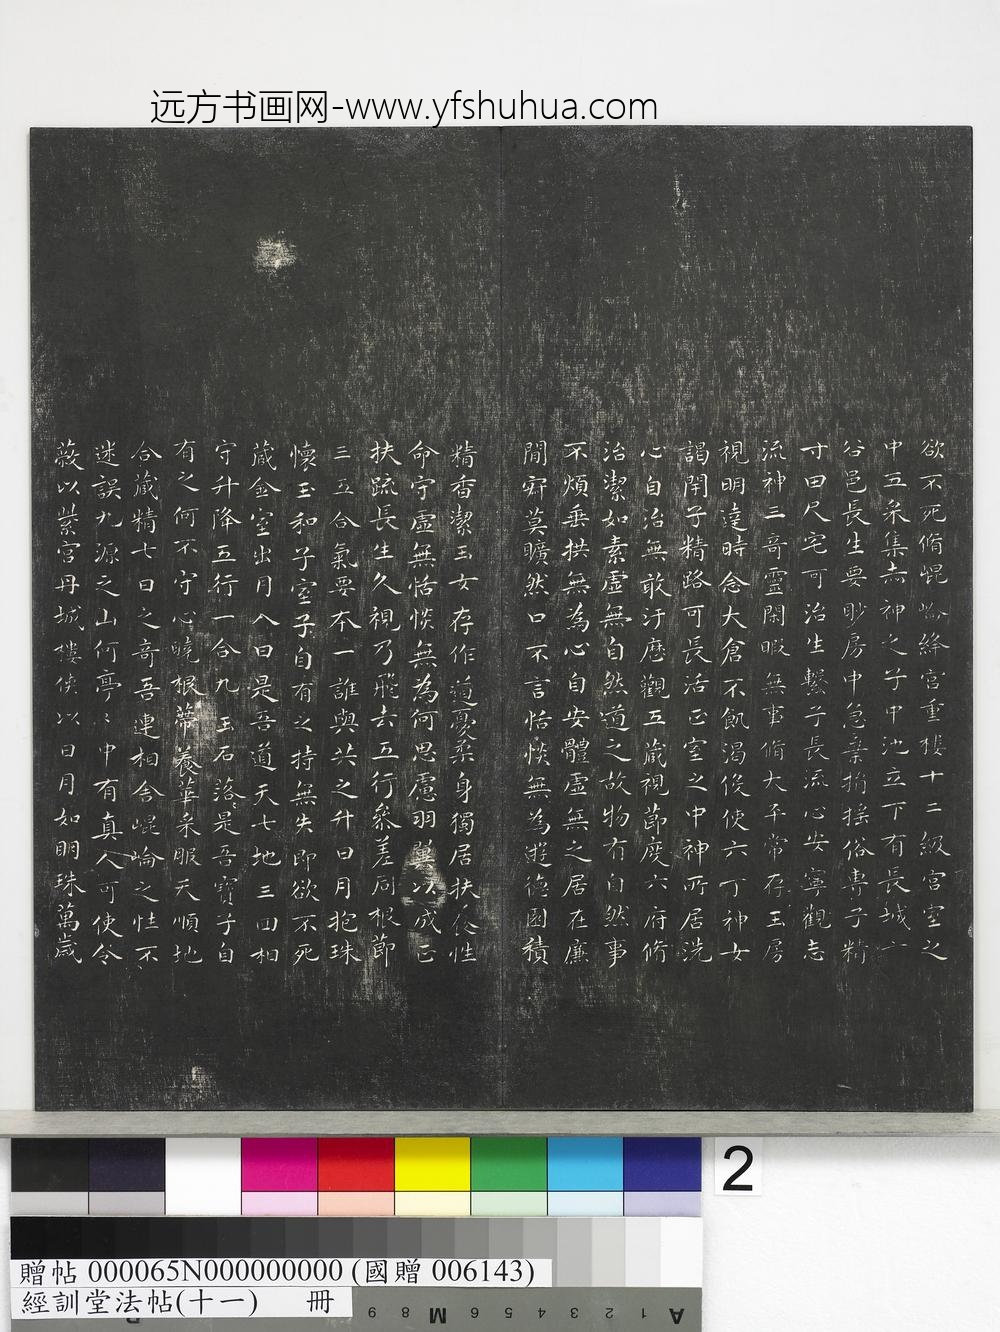 远方书画网-www.yfshuhua.com
欲不死脩崐崘絳宮重樓十二級宮室之
中五采集赤神之子中池立下有長城
谷邑長生要眇房中急棄捐搖俗專子精
寸田尺宅可治生繫子長流心安寧觀志
流神三奇靈閑暇無事脩太平常存玉房
視明達時念大倉不飢渴役使六丁神女
謁閉子精路可長活正室之中神所居洗
心自治無敢汙歷觀五藏視節度六府脩
治潔如素虛無自然道之故物有自然事
不煩垂拱無為心自安體虛無之居在廉
間寂莫曠然口不言恬惔無為遊德園積
精香潔玉女存作道憂柔身獨居扶養性
命守虛無恬惔無為何思慮羽翼以成正
扶疏長生久視乃飛去五行參差同根節
三五合氣要本一誰與共之升日月抱珠
懷玉和子室子自有之持無失即欲不死
藏金室出月入日是吾道天七地三四相
守升降五行一合九玉石落落是吾寶子自
有之何不守心曉根蒂養華采服天順地
合藏精七日之奇吾連相舍崐崘之性不
迷誤九源之山何亭亭中有真人可使令
蔽以紫宮丹城樓俠以日月如明珠萬歲
2
贈帖 000065N000000000 (國贈 006143)
經訓堂法帖(十一) 冊
9 8 M 6 5 4 3 2 1 A